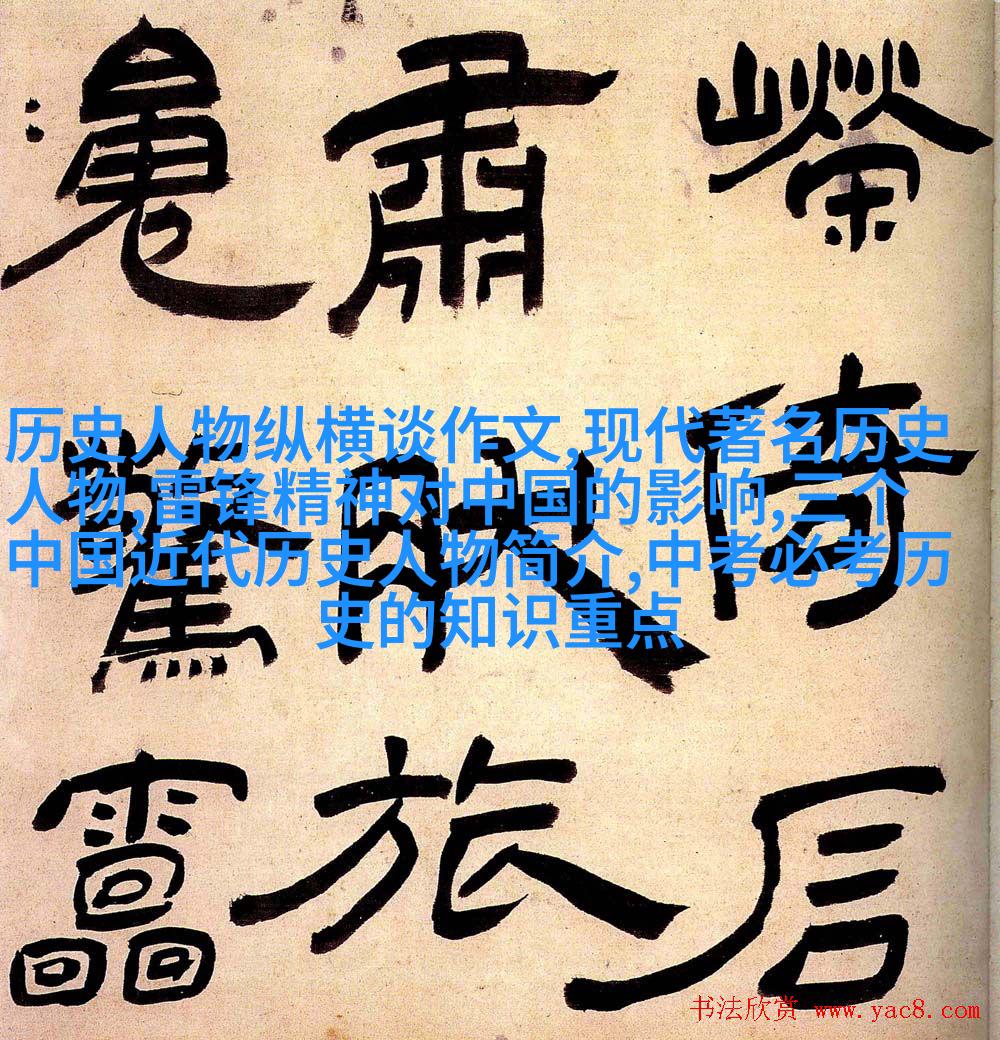 倚
肅
旅
历史人物纵横谈作文,现代著名历史
人物,雷锋精神对中国的影响,三个
中国近代历史人物简介,中考必考历
史的知识重点
书法欣赏 www.yac8.com